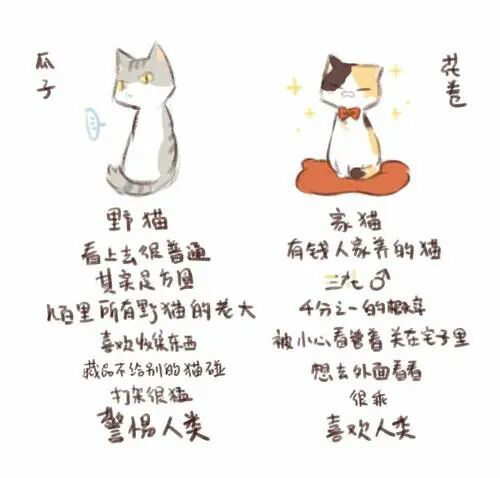 瓜子
野猫
看上去很普通
其实是方圆
几百里所有野猫的老大
喜欢收集东西
藏品不给别的猫碰
打架很猛
警惕人类
花卷
家猫
有钱人家养的猫
三花♂
千分之一的概率
被小心看管着 关在宅子里
想去外面看看
很乖
喜欢人类